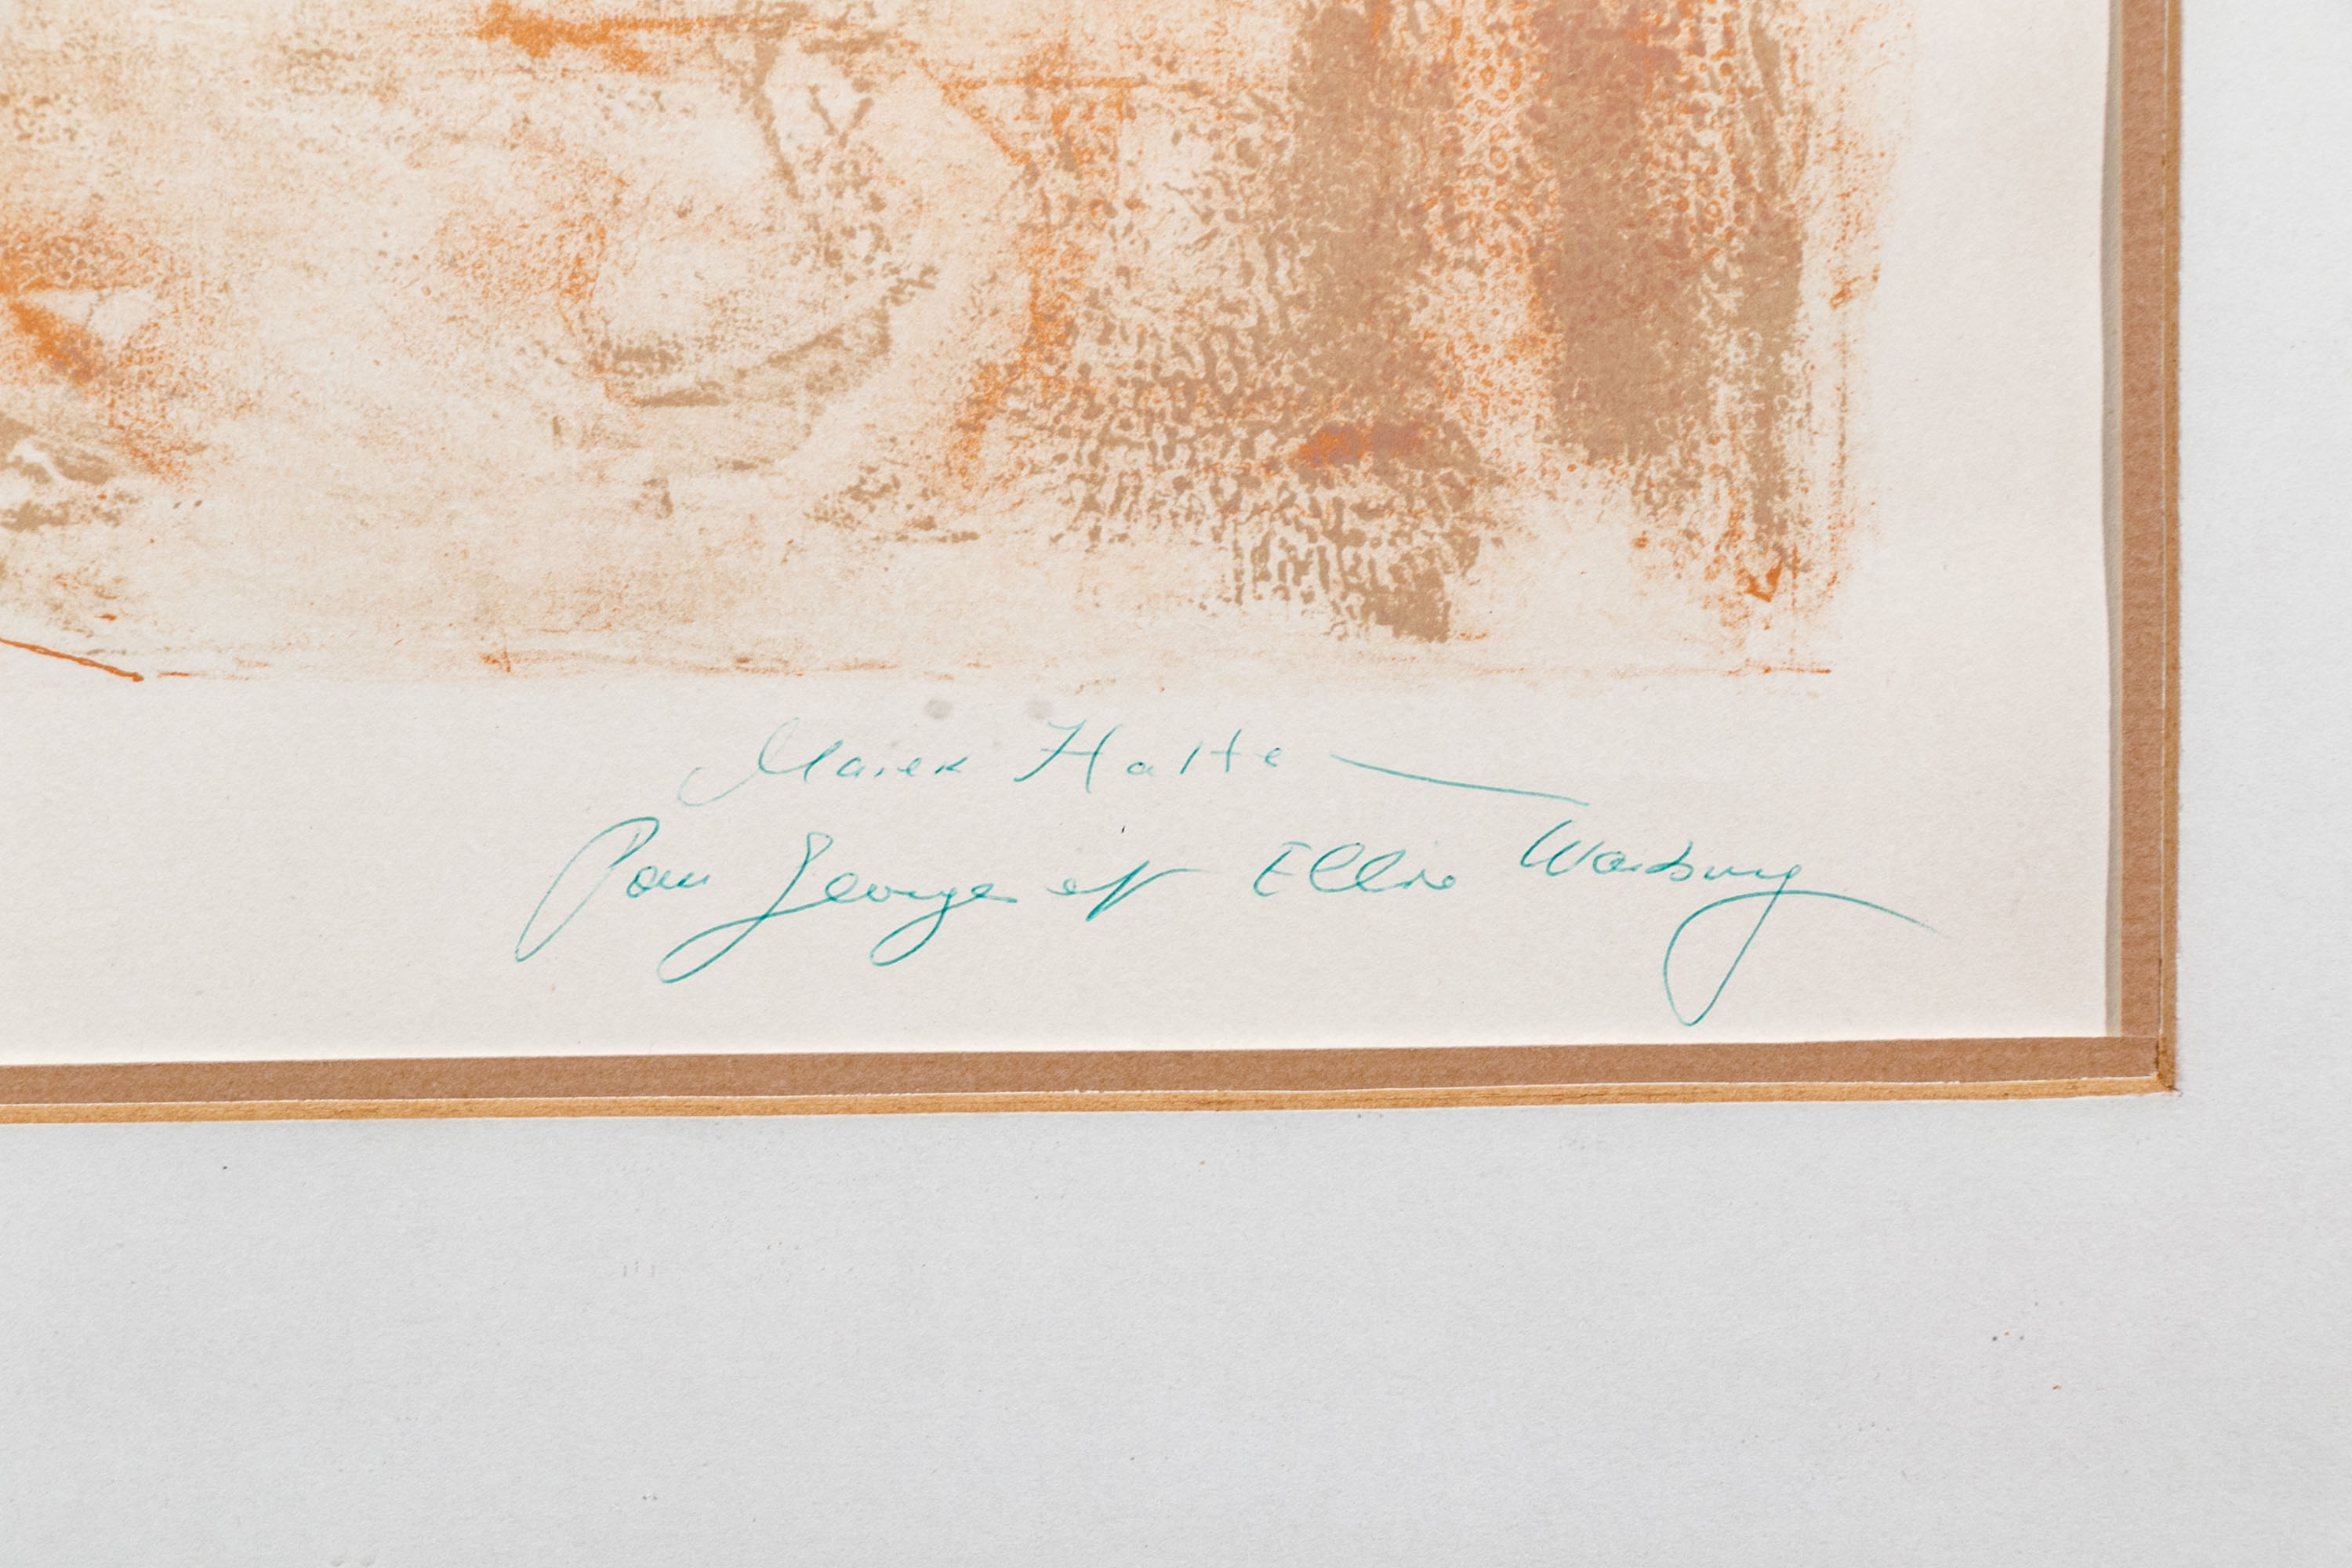 Marek Halter
Pour George et Ellie Warburg